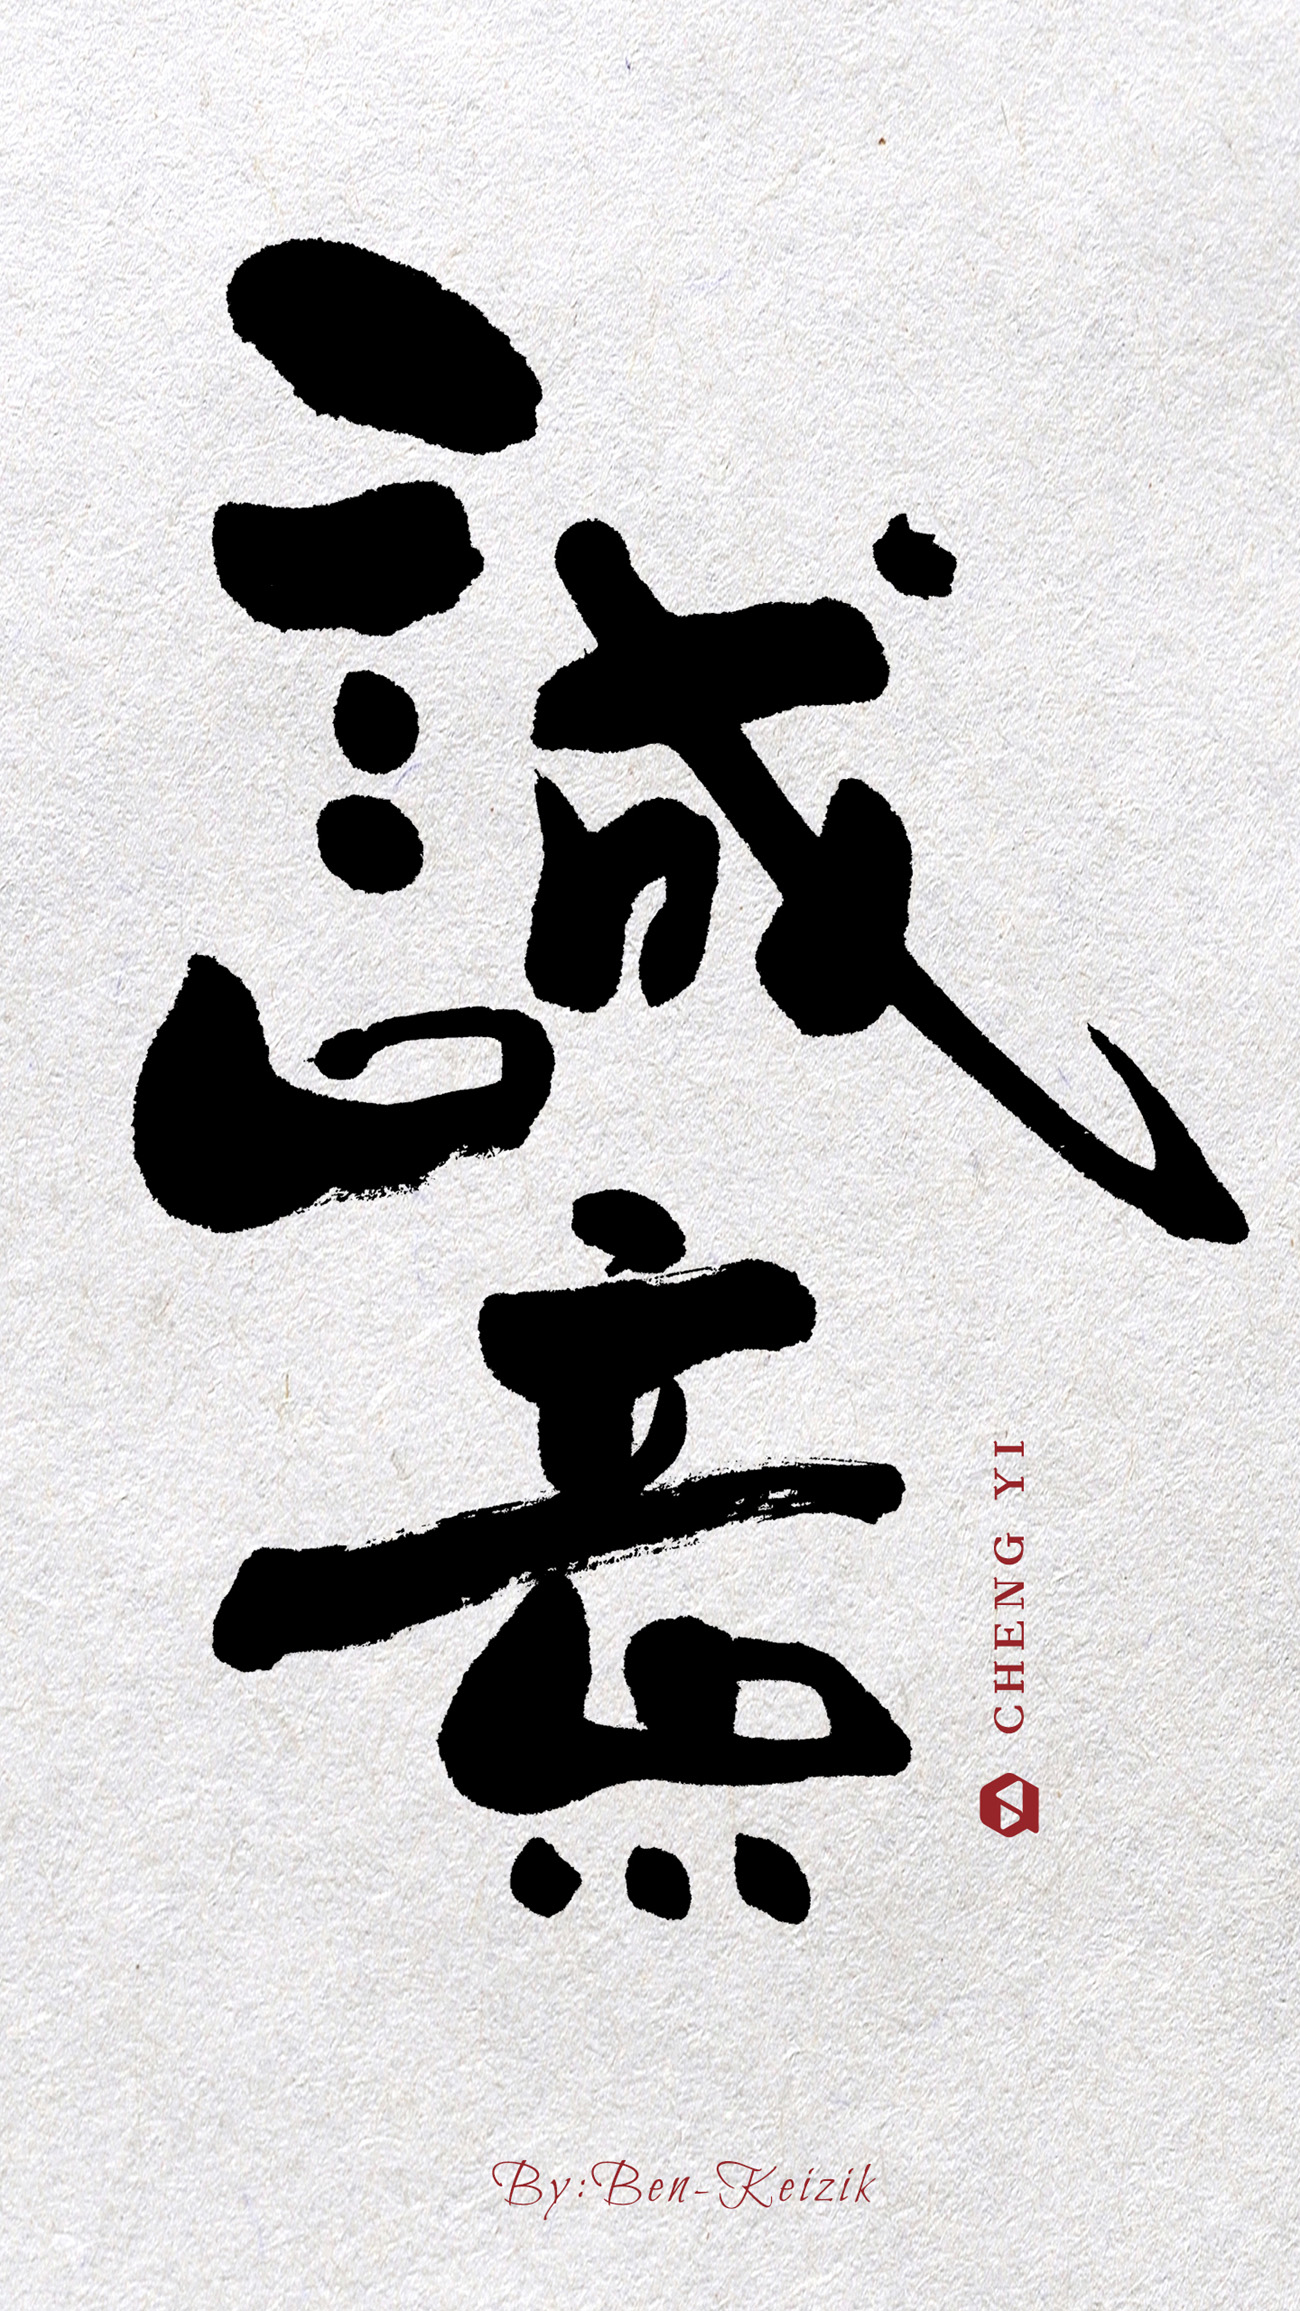 誠意
CHENG YI
By:Ben-Keizik